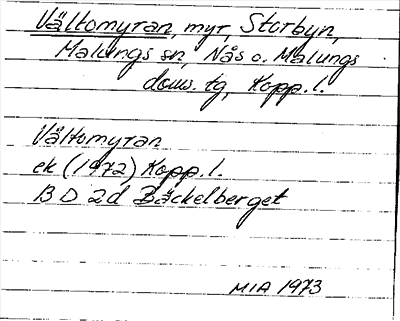 Vältomyran, myr, Storbyn,
Malungs sn, Nås o. Malungs
doms. tg, Kopp. l.
Vältomyran
ek (1972) Kopp. l.
13 D 2d Bäckelberget
MIA 1973